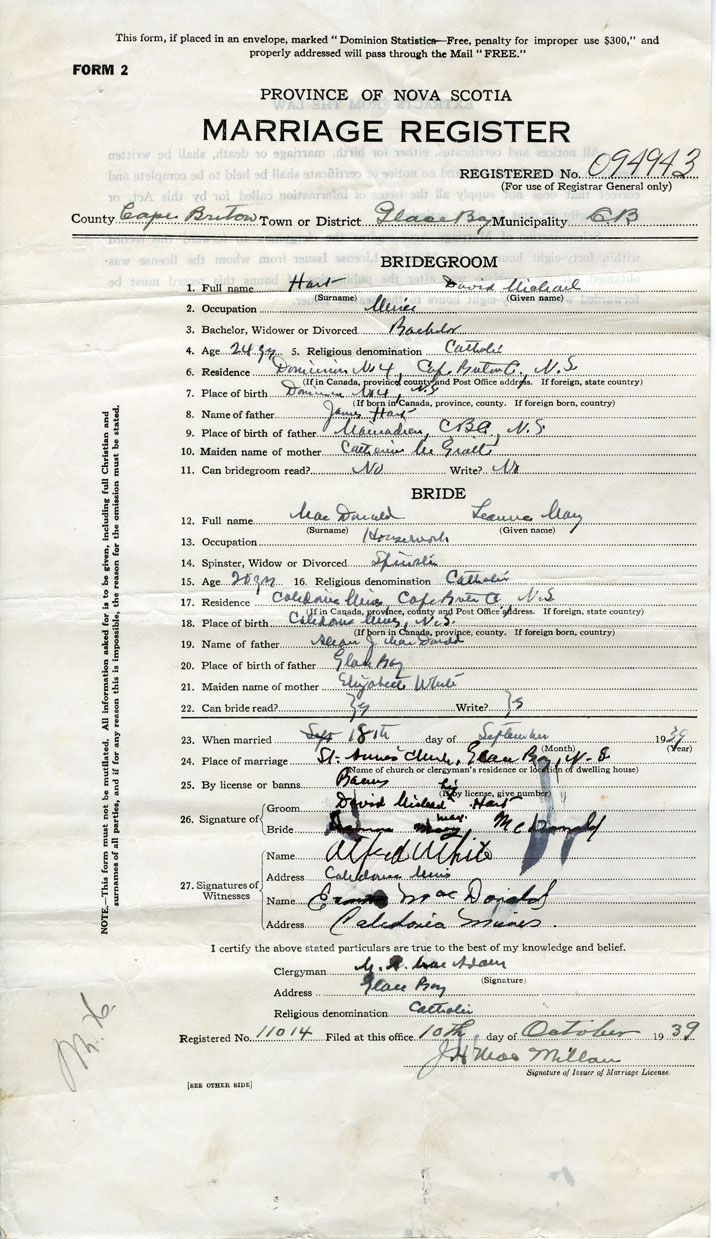 This form, if placed in an envelope, marked "Dominion Statistics—Free, penalty for improper use $300," and
properly addressed will pass through the Mail "FREE."
FORM 2
PROVINCE OF NOVA SCOTIA
MARRIAGE REGISTER
REGISTERED No. 094943
(For use of Registrar General only)
County Cape Breton Town or District Glace Bay Municipality CB
BRIDEGROOM
1. Full name Hart David Michael
(Surname) (Given name)
2. Occupation Miner
3. Bachelor, Widower or Divorced Bachelor
4. Age 24 yrs 5. Religious denomination Catholic
6. Residence Dominion No 4, Cape Breton Co, N.S.
(If in Canada, province, county and Post Office address. If foreign, state country)
7. Place of birth Dominion No 4, N.S
(If born in Canada, province, county. If foreign born, country)
8. Name of father James Hart
9. Place of birth of father Mainadieu, CB Co, N.S
10. Maiden name of mother Catherine
11. Can bridegroom read? No Write? No
BRIDE
12. Full name MacDonald May
(Surname) (Given name)
13. Occupation Housework
14. Spinster, Widow or Divorced Spinster
15. Age 20 yrs 16. Religious denomination Catholic
17. Residence Caledonia Mines, Cape Breton Co, N.S
(If in Canada, province, county and Post Office address. If foreign, state country)
18. Place of birth Caledonia Mines, N.S.
(If born in Canada, province, county. If foreign born, country)
19. Name of father J MacDonald
20. Place of birth of father Glace Bay
21. Maiden name of mother Elizabeth White
22. Can bride read? Yes Write? Yes
23. When married Sept 18th day of September 1939
(Month) (Year)
24. Place of marriage St. Anne's Church, Glace Bay, N.S
(Name of church or clergyman's residence or location of dwelling house)
25. By license or banns Banns
(If by license, give number)
26. Signature of
Groom David Michael his Hart
mark
Bride McDonald
27. Signatures of Witnesses
Name Alfred White
Address Caledonia Mines
Name MacDonald
Address Caledonia Mines
I certify the above stated particulars are true to the best of my knowledge and belief.
Clergyman M. A. MacAdam
(Signature)
Address Glace Bay
Religious denomination Catholic
Registered No. 11014 Filed at this office 10th day of October 1939
J H MacMillan
Signature of Issuer of Marriage License.
[SEE OTHER SIDE]
NOTE.—This form must not be mutilated. All information asked for is to be given, including full Christian and
surnames of all parties, and if for any reason this is impossible, the reason for the omission must be stated.